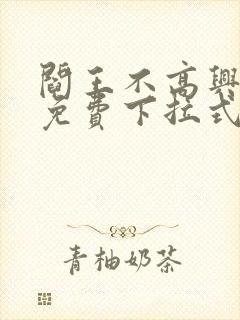 閻王不高興
免費下拉式
青柚奶茶